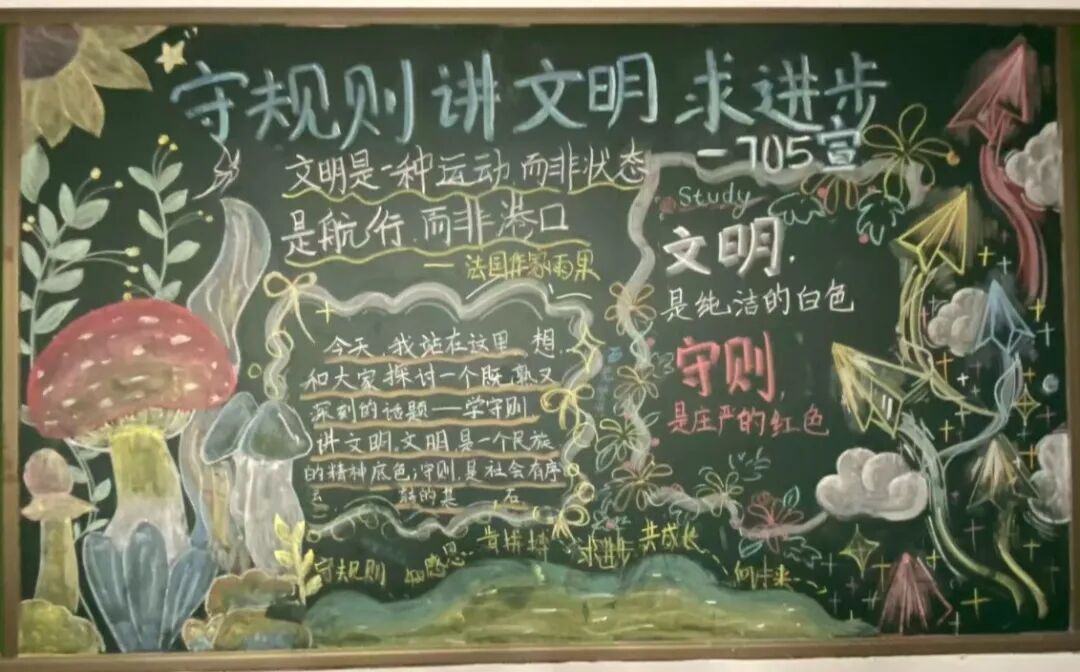 守规则讲文明求进步
—705宣
文明是一种运动,而非状态
是航行,而非港口
—法国作家雨果
Study
文明,
是纯洁的白色
守则,
是庄严的红色
今天,我站在这里,想
和大家探讨一个既熟又
深刻的话题——学守则,
讲文明。文明,是一个民族
的精神底色;守则,是社会有序
的基 石
守规则 感恩 求进步 共成长